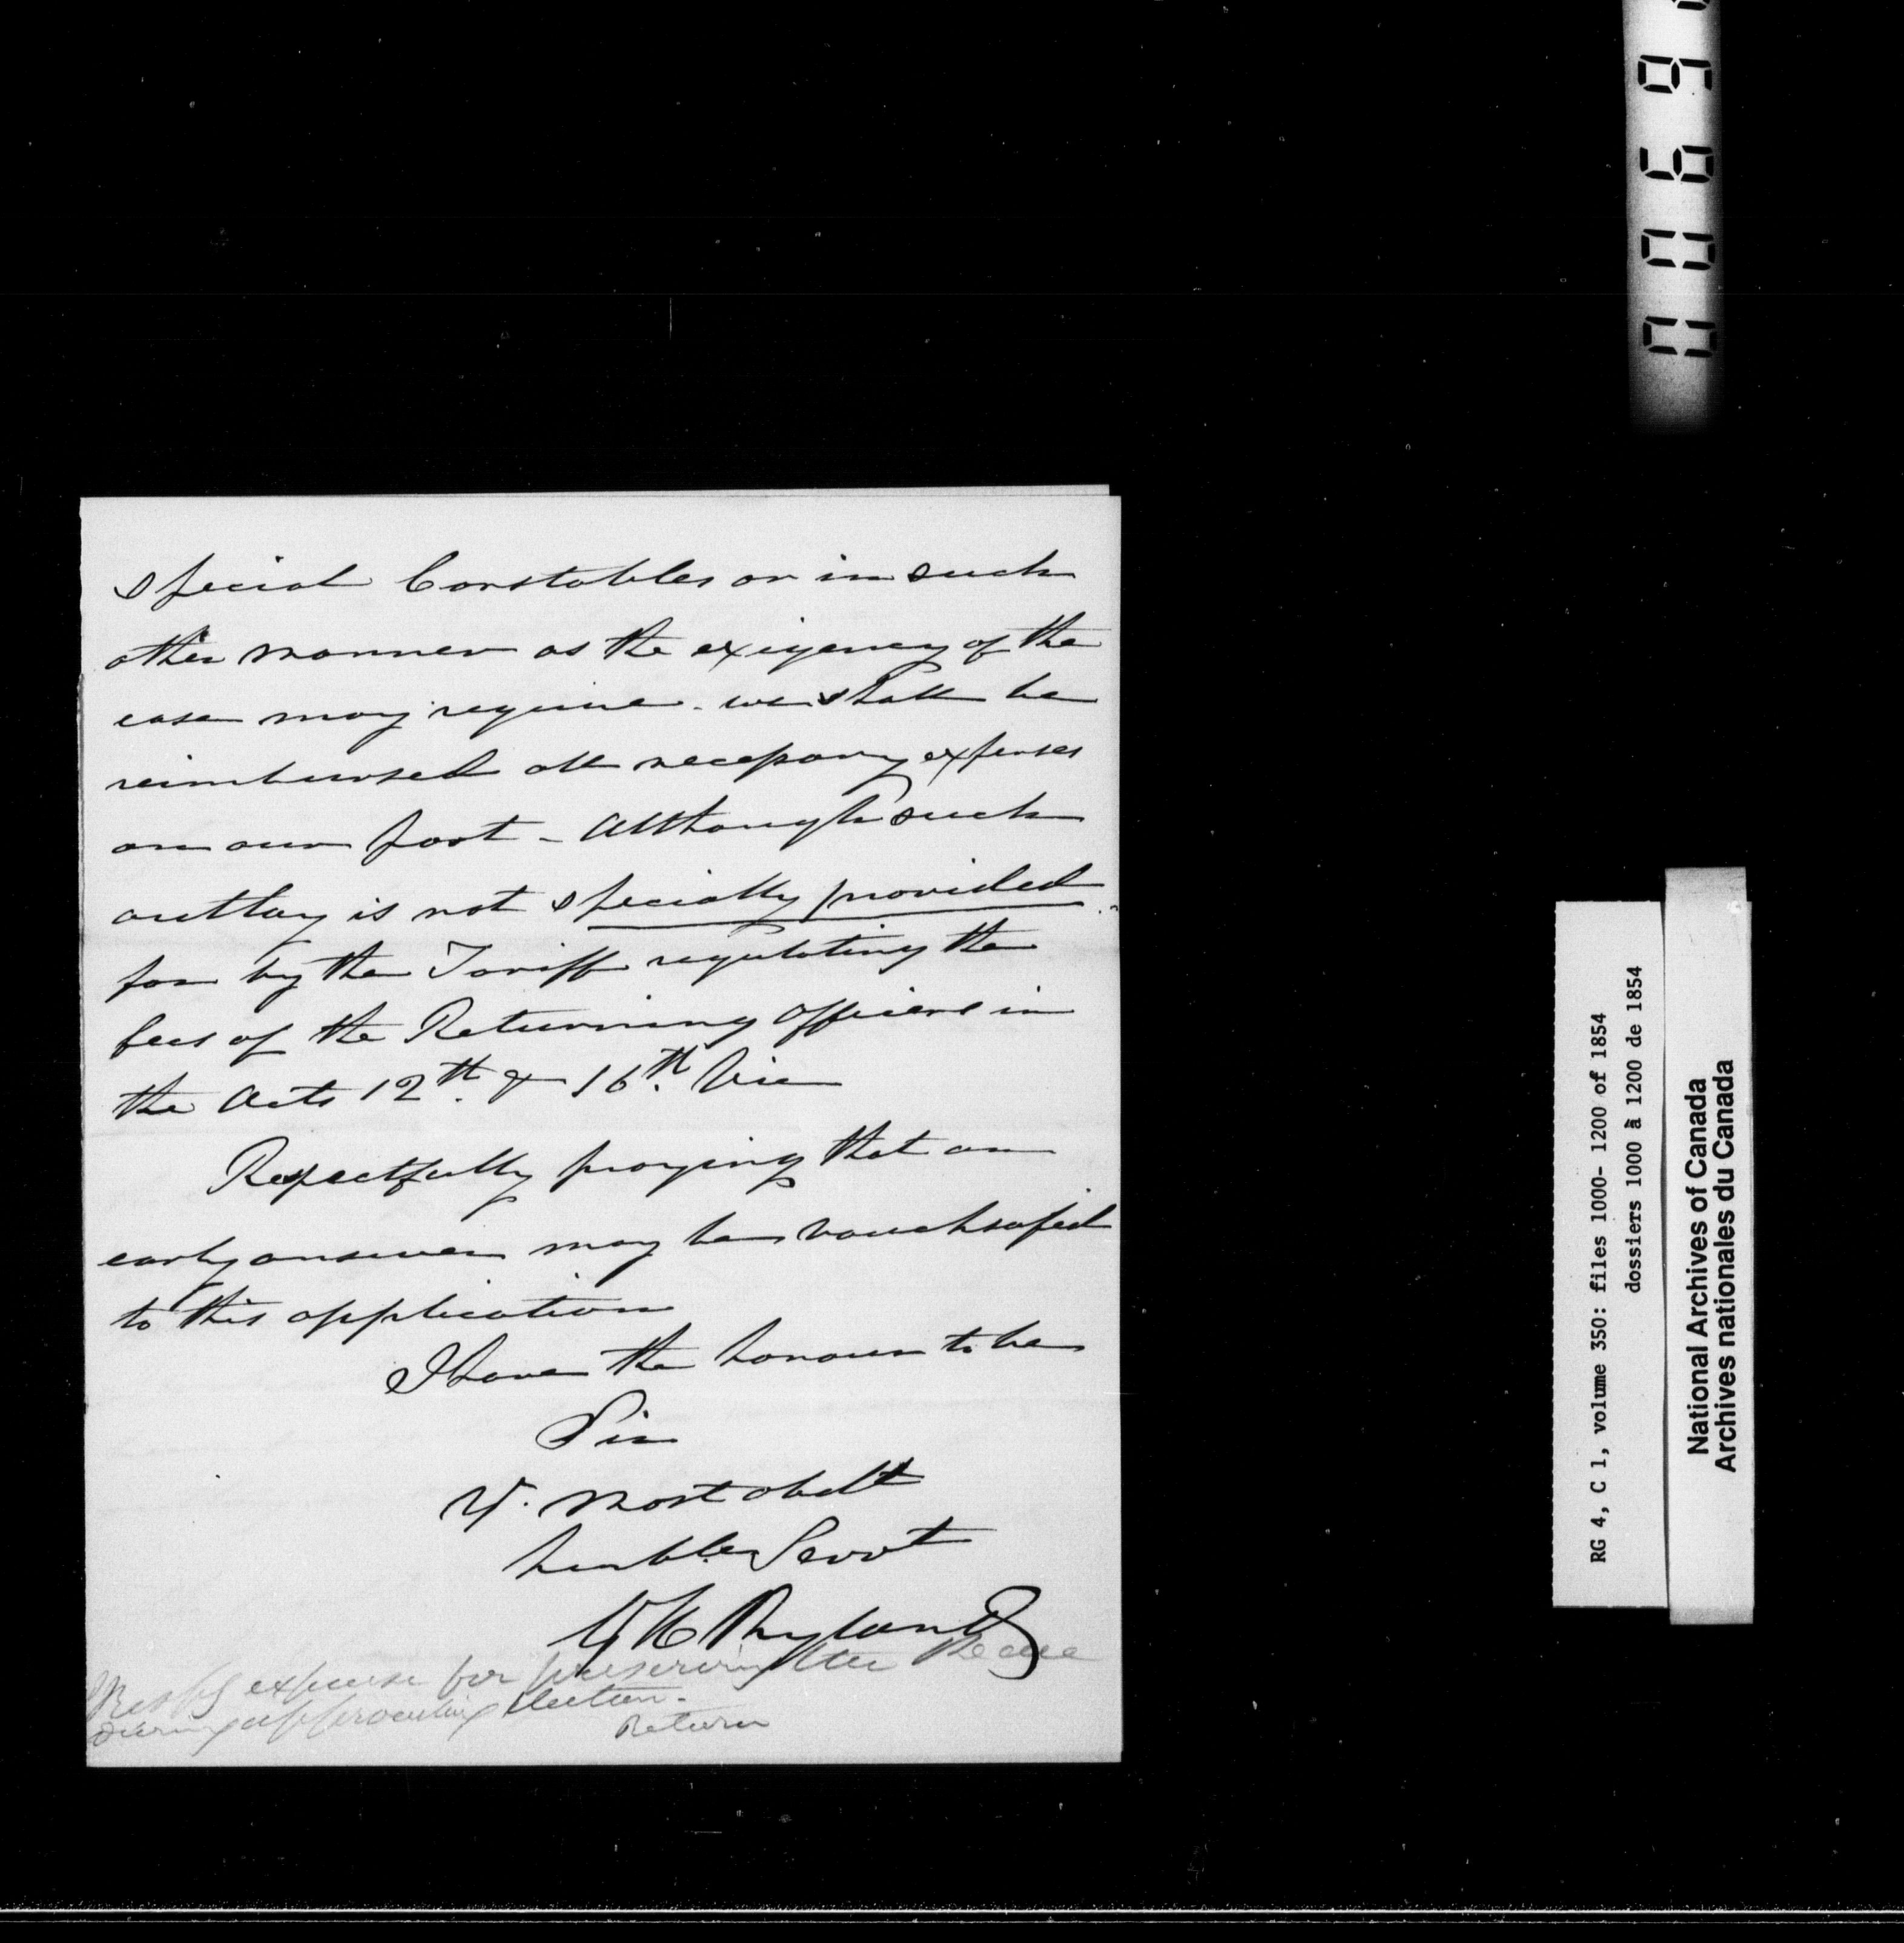 special Constables or in such
other manner as the exigency of the
case may require - we shall be
reimbursed all necessary expenses
on our part - Although such
outlay is not specially provided
for by the Tariff regulating the
fees of the Returning Officers in
the Acts 12th & 16th Vic
Respectfully praying that an
early answer may be vouchsafed
to this application
I have the honour to be
Sir
Yr. most obedt
humble Servt
G H Ryland
expense for preserving the Peace
during approaching Election -
Return
RG 4, C 1, volume 350: files 1000- 1200 of 1854
dossiers 1000 à 1200 de 1854
National Archives of Canada
Archives nationales du Canada